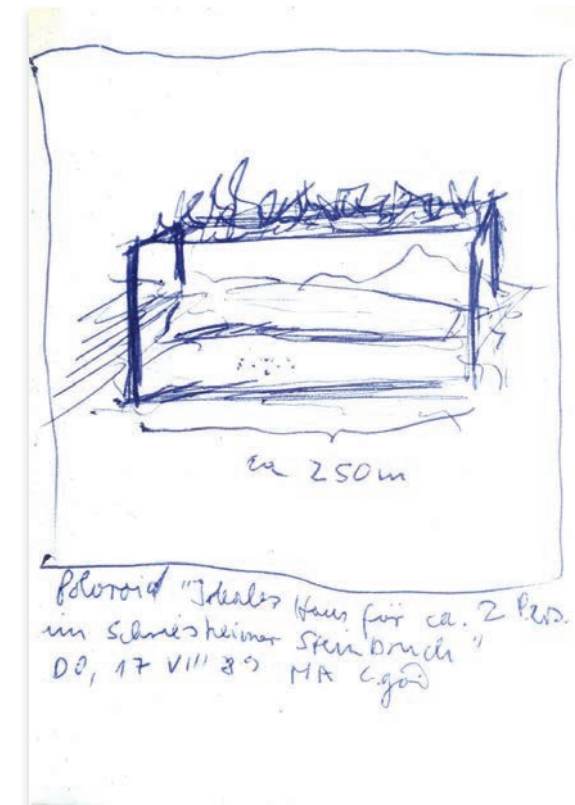 ca 250m
Polaroid "Ideales Haus für ca. 2 Pers.
im Schriesheimer Steinbruch"
DO, 17 VIII 89 MA